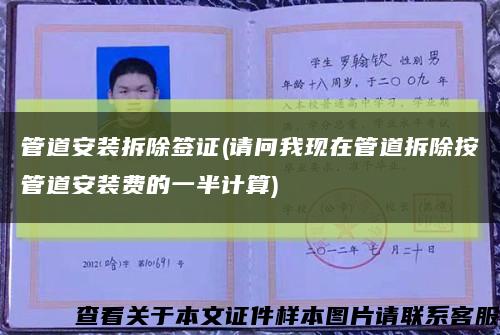 学生罗翰钦 性别男
年龄十八周岁，于二〇〇九年
管道安装拆除签证(请问我现在管道拆除按
管道安装费的一半计算)
二〇一二年 七月二十日
2012(哈)字 第101691号
查看关于本文证件样本图片请联系客服